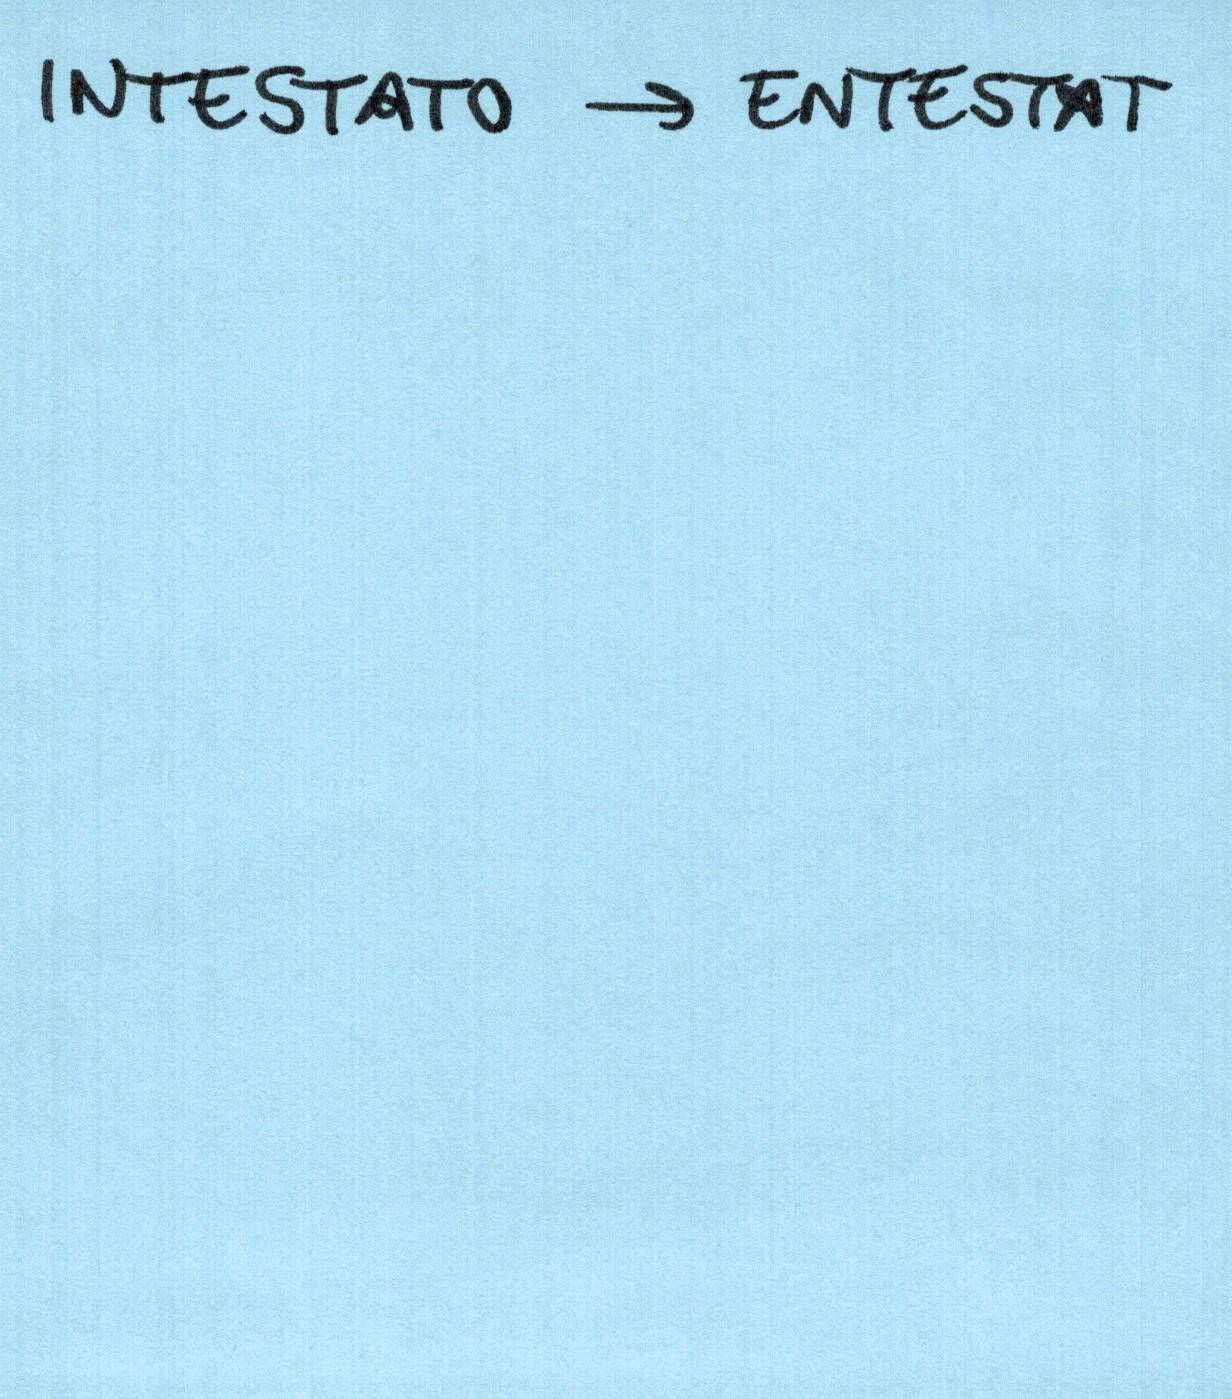 INTESTATO → ENTESTAT